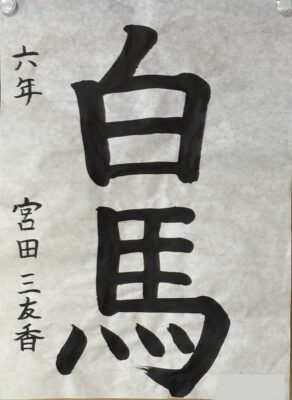 白馬
六年 宮田三友香